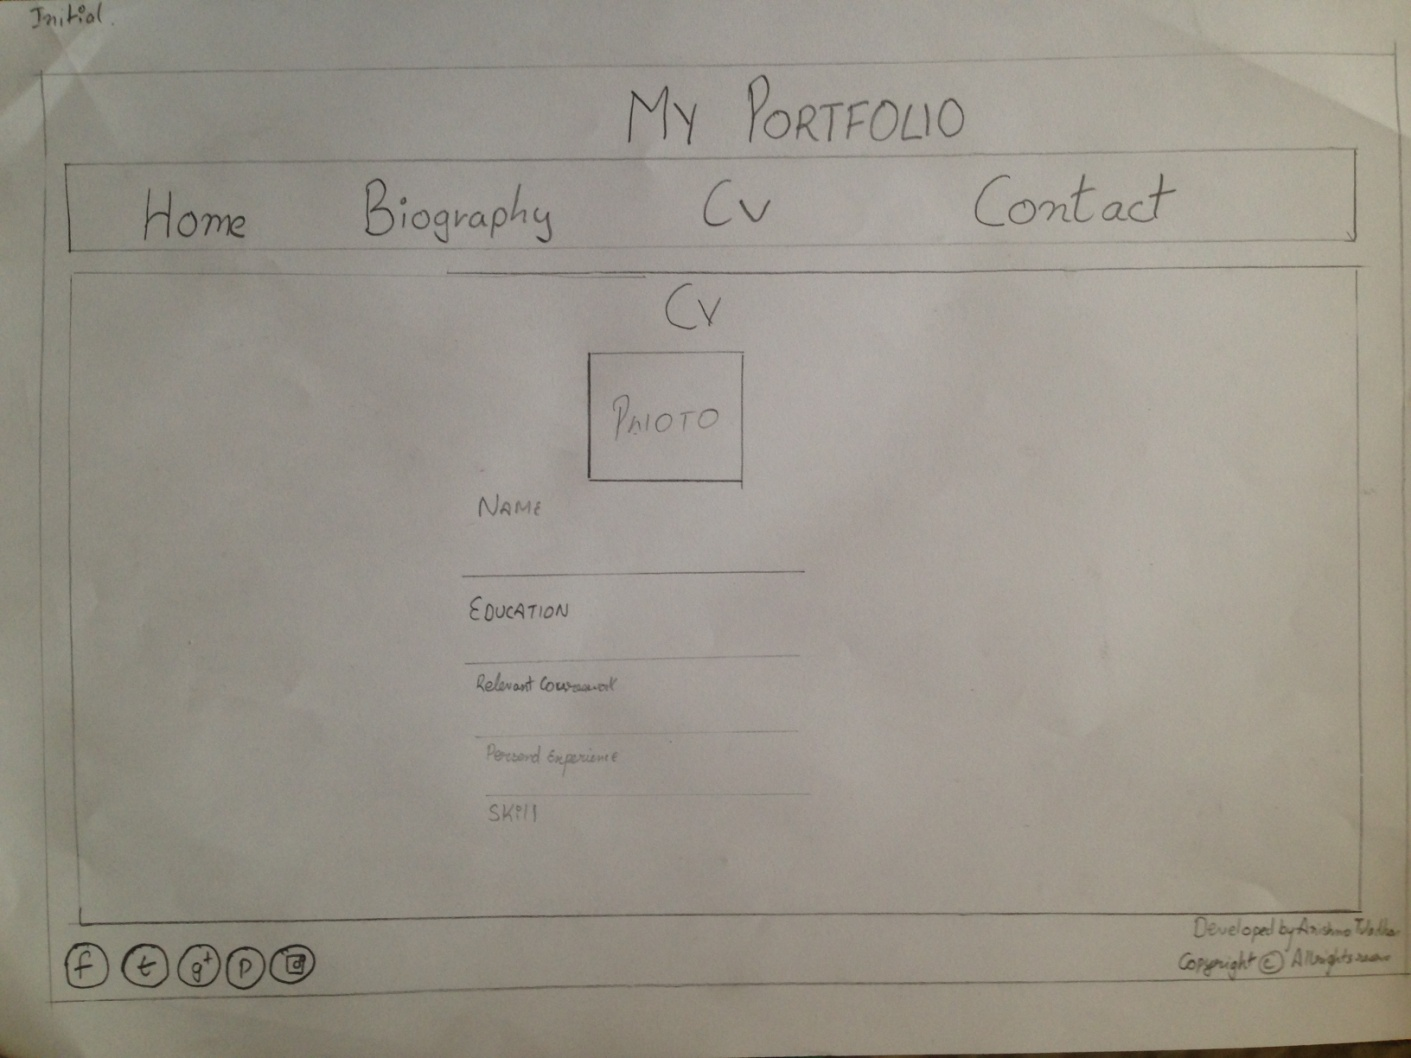 Initial.
MY PORTFOLIO
Home Biography CV Contact
CV
PHOTO
NAME
EDUCATION
Relevant
Experience
Skill
f t g+ P
Developed by
Copyright © All rights